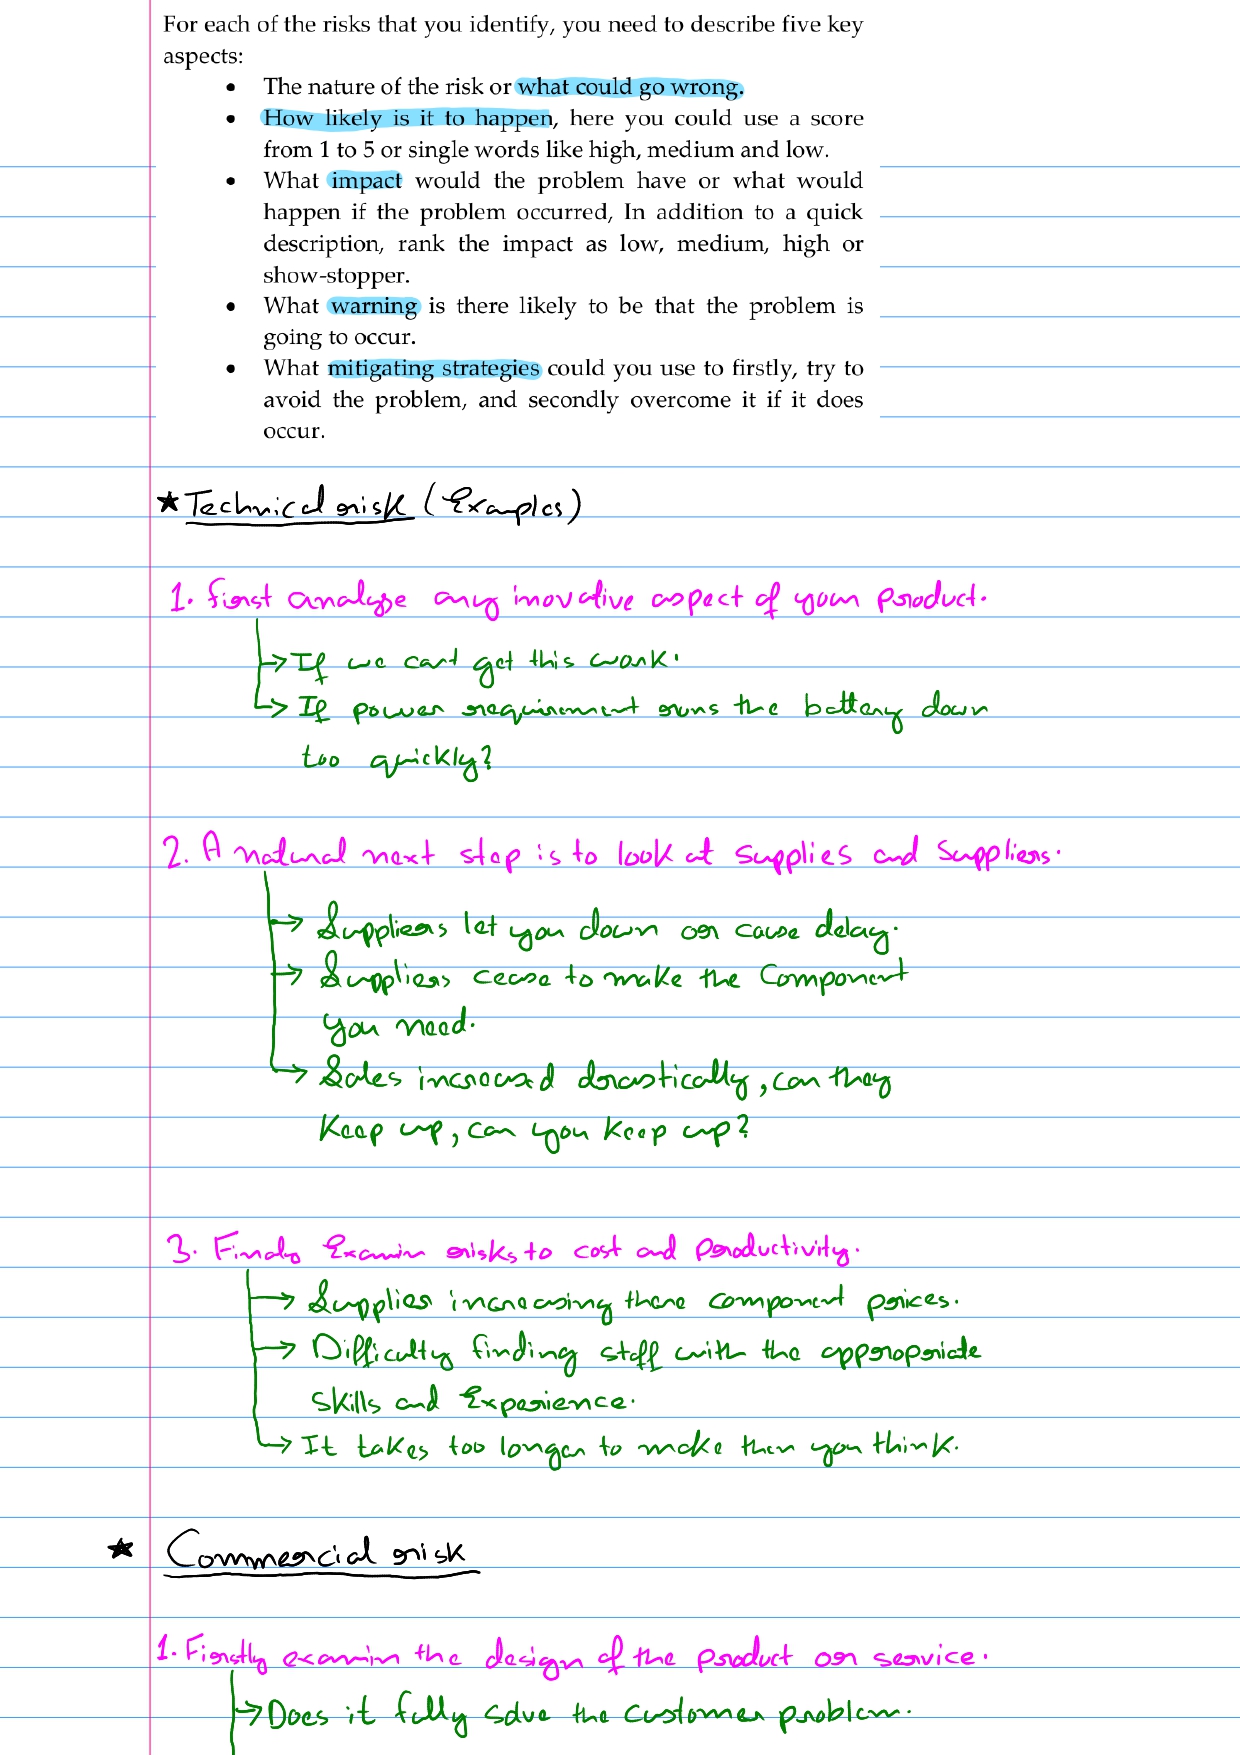 For each of the risks that you identify, you need to describe five key
aspects:
• The nature of the risk or what could go wrong.
• How likely is it to happen, here you could use a score
from 1 to 5 or single words like high, medium and low.
• What impact would the problem have or what would
happen if the problem occurred, In addition to a quick
description, rank the impact as low, medium, high or
show-stopper.
• What warning is there likely to be that the problem is
going to occur.
• What mitigating strategies could you use to firstly, try to
avoid the problem, and secondly overcome it if it does
occur.
★ Technical risk (Examples)
1. First analyse any inovative aspect of your product.
→ If we cant get this work.
→ If power requirement runs the battery down
too quickly?
2. A natural next step is to look at supplies and suppliers.
→ Suppliers let you down or cause delay.
→ Suppliers cease to make the component
you need.
→ Sales increased drastically, can they
keep up, can you keep up?
3. Finaly Examin risks to cost and productivity.
→ Supplier increasing there component prices.
→ Difficulty finding staff with the appropriate
skills and Experience.
→ It takes too longer to make then you think.
★ Commercial risk
1. Firstly examin the design of the product or service.
→ Does it fully solve the customer problem.